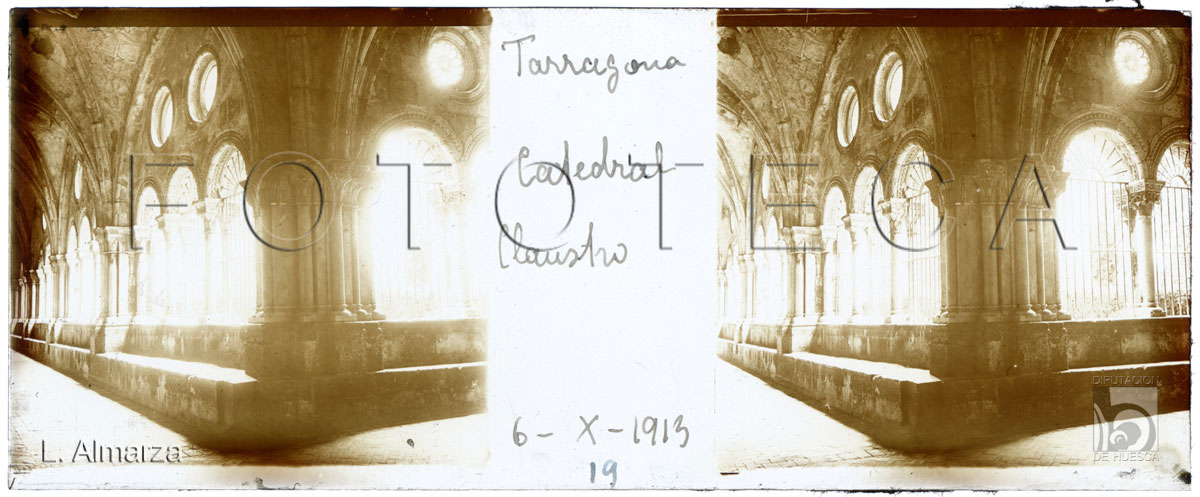 Tarragona
Catedral
Claustro
6 - X - 1913
19
FOTOTECA
L. Almarza
DIPUTACIÓN
DE HUESCA